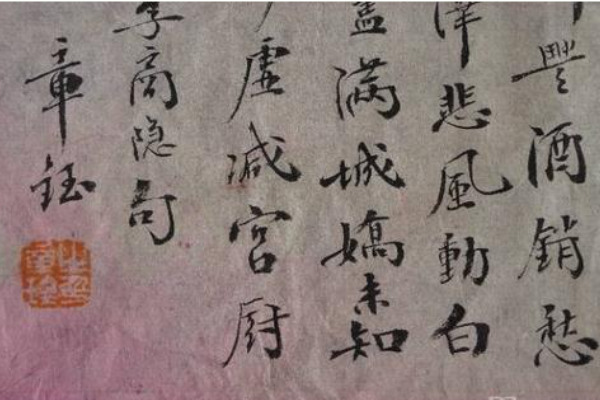 豐酒銷愁
澤悲風動白
盡滿城嬌未知
虛減宮廚
李商隐句
章鈺